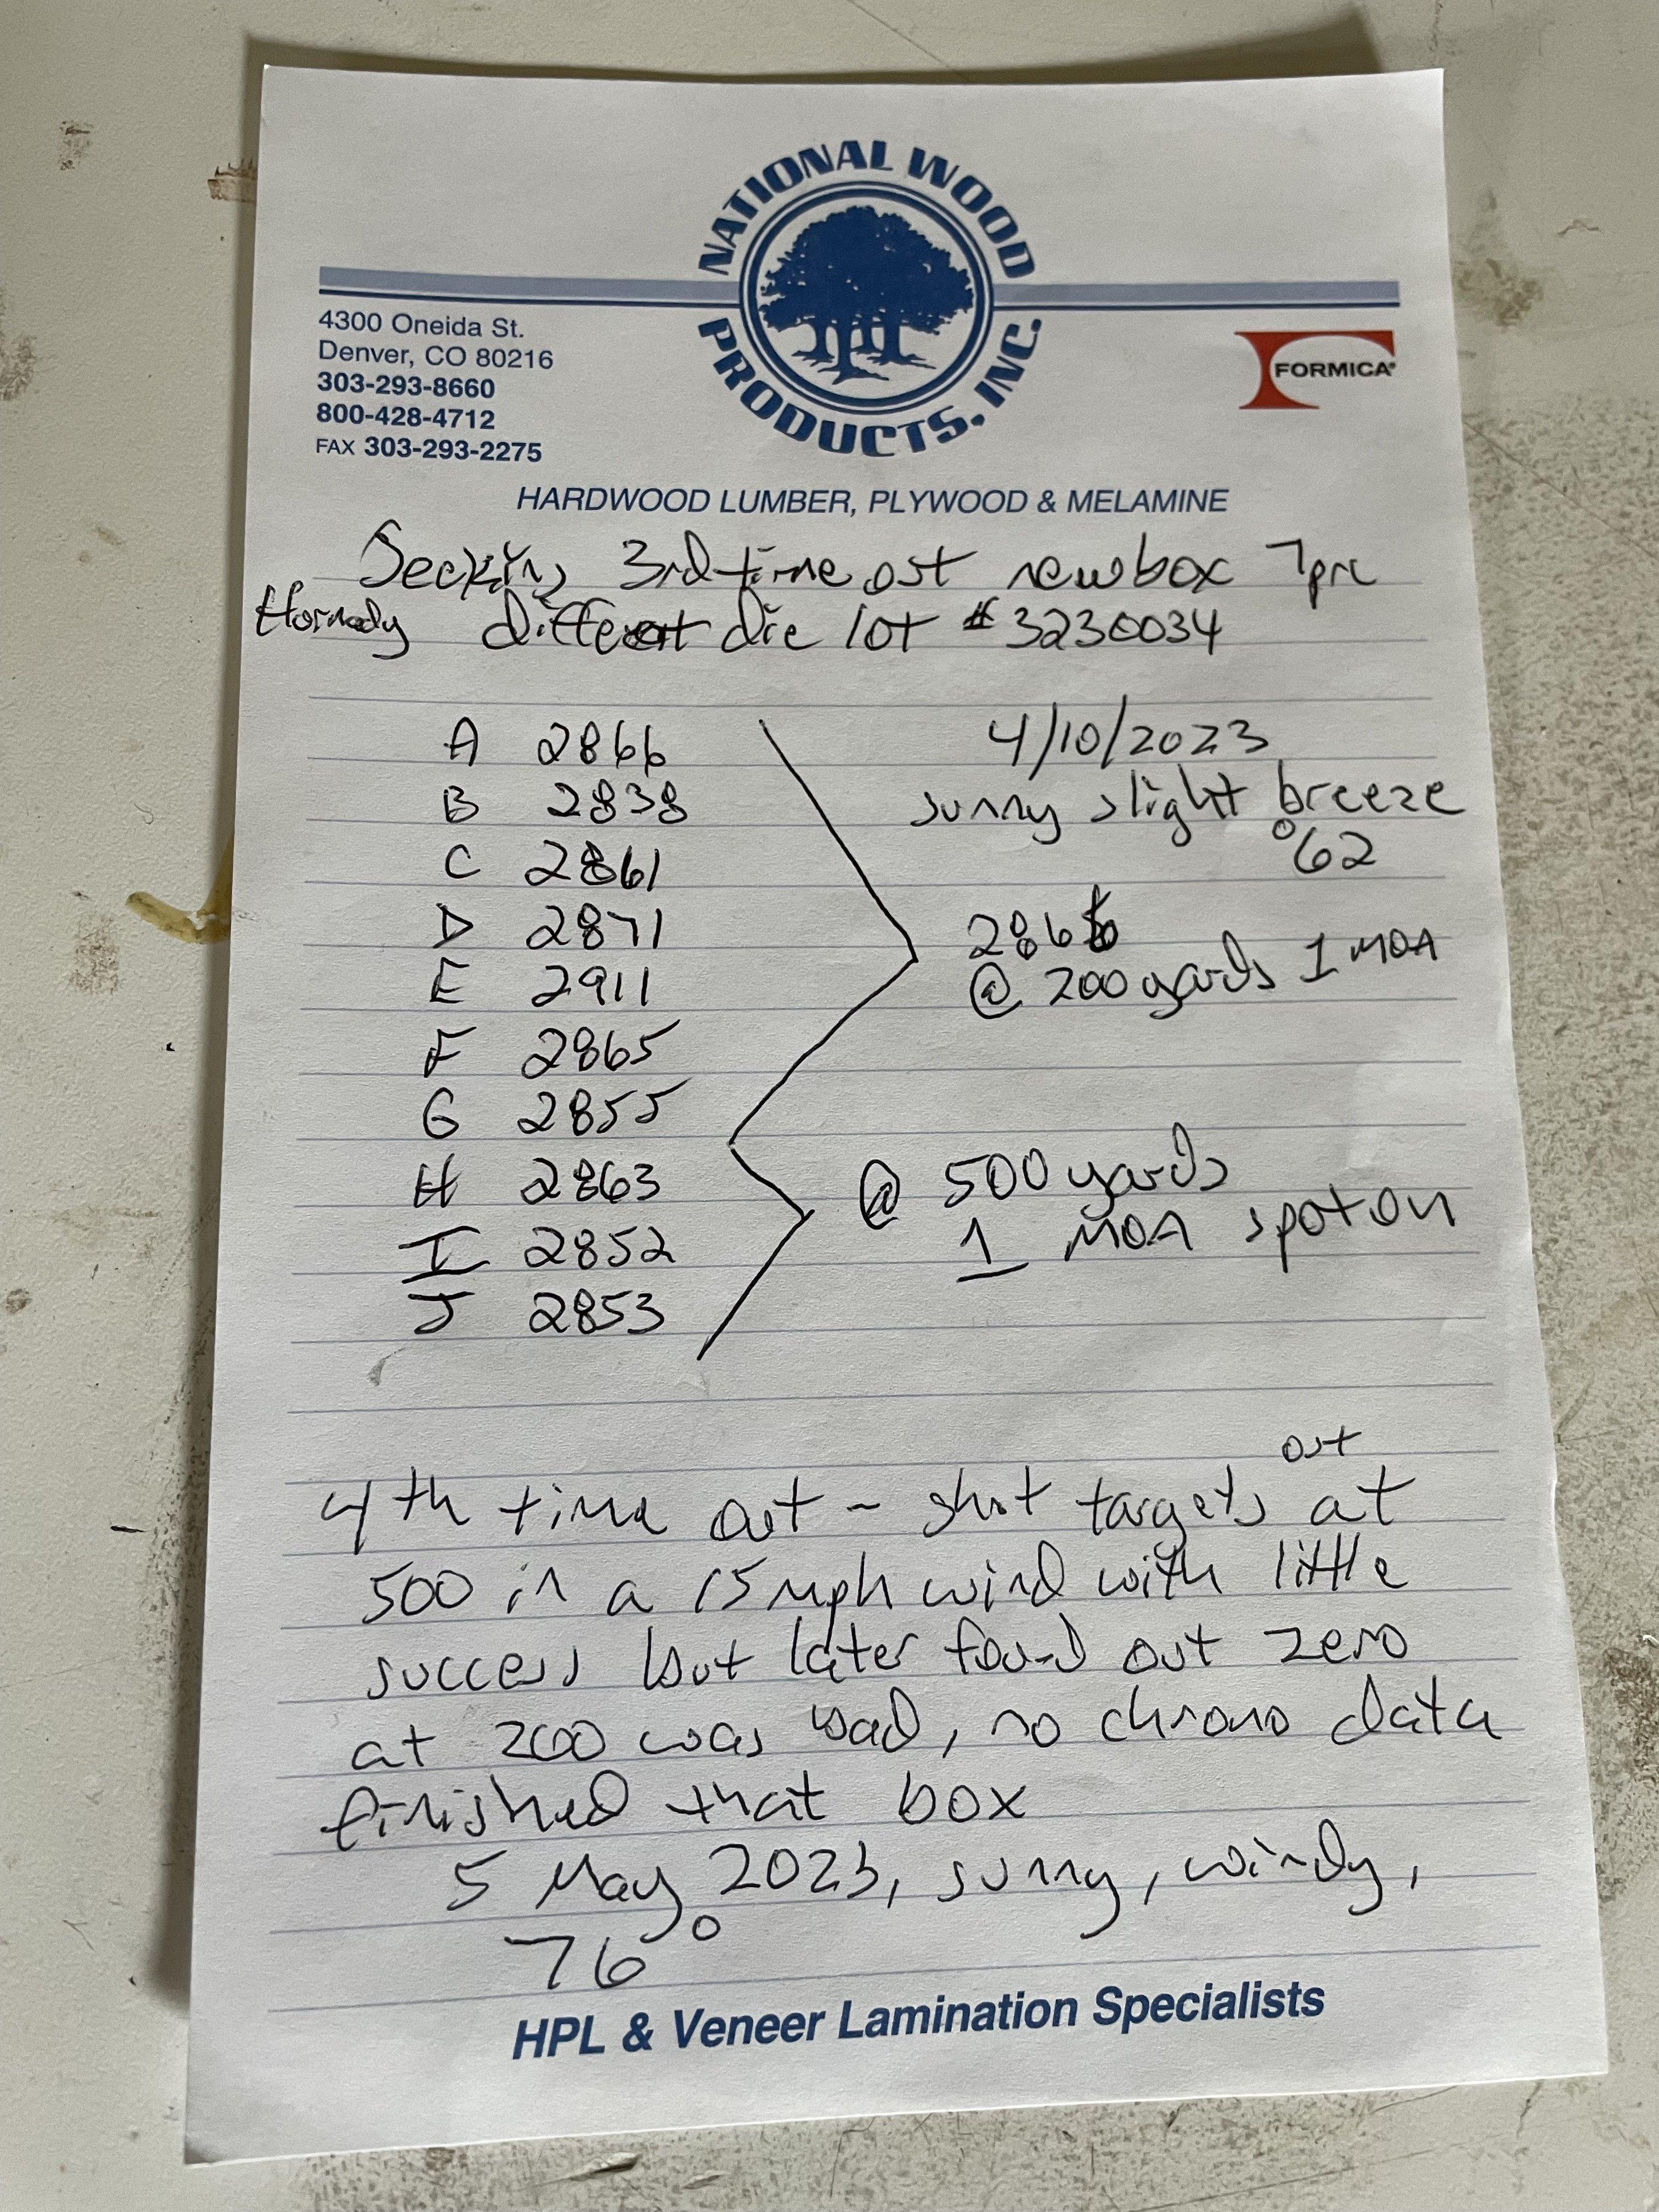 NATIONAL WOOD
PRODUCTS, INC.
4300 Oneida St.
Denver, CO 80216
303-293-8660
800-428-4712
FAX 303-293-2275
FORMICA®
HARDWOOD LUMBER, PLYWOOD & MELAMINE
3rd time out new box 7prc
Hornady different die lot # 3230034
A 2866
B 2838
C 2861
D 2871
E 2911
F 2865
G 2855
H 2863
I 2852
J 2853
4/10/2023
sunny slight breeze
°62
2866
@ 200 yards 1 MOA
@ 500 yards
1 MOA spot on
out
4th time out - shot targets at
500 in a 15 mph wind with little
success but later found out zero
at 200 was bad, no chrono data
finished that box
5 May 2023, sunny, windy,
76°
HPL & Veneer Lamination Specialists